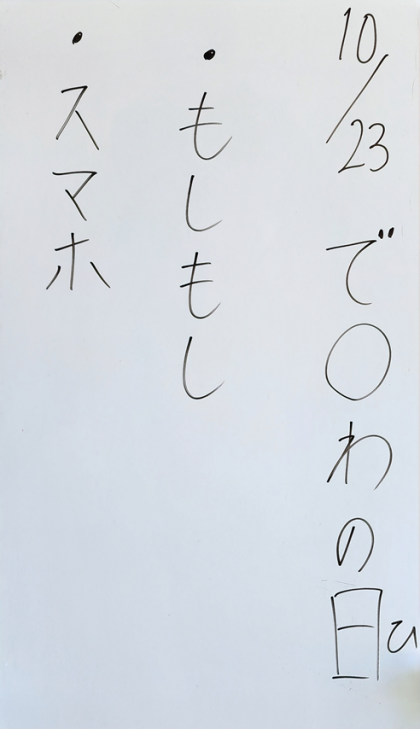 10/23 で〇わの日 ひ
・もしもし
・スマホ